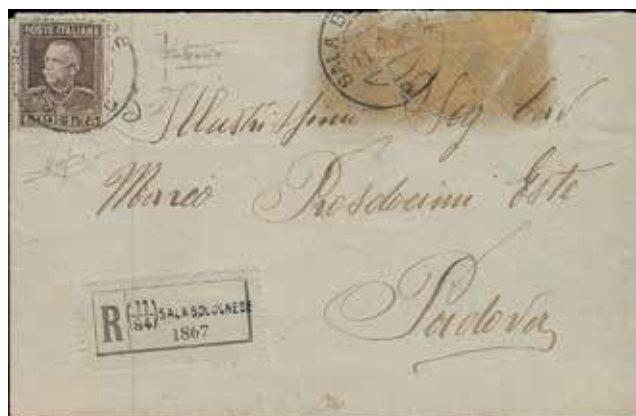 POSTE ITALIANE
SALA B
11
Illustrissimo Sig Cav
Marco Prosdocimi Este
Padova
R (11/84) SALA BOLOGNESE
1867